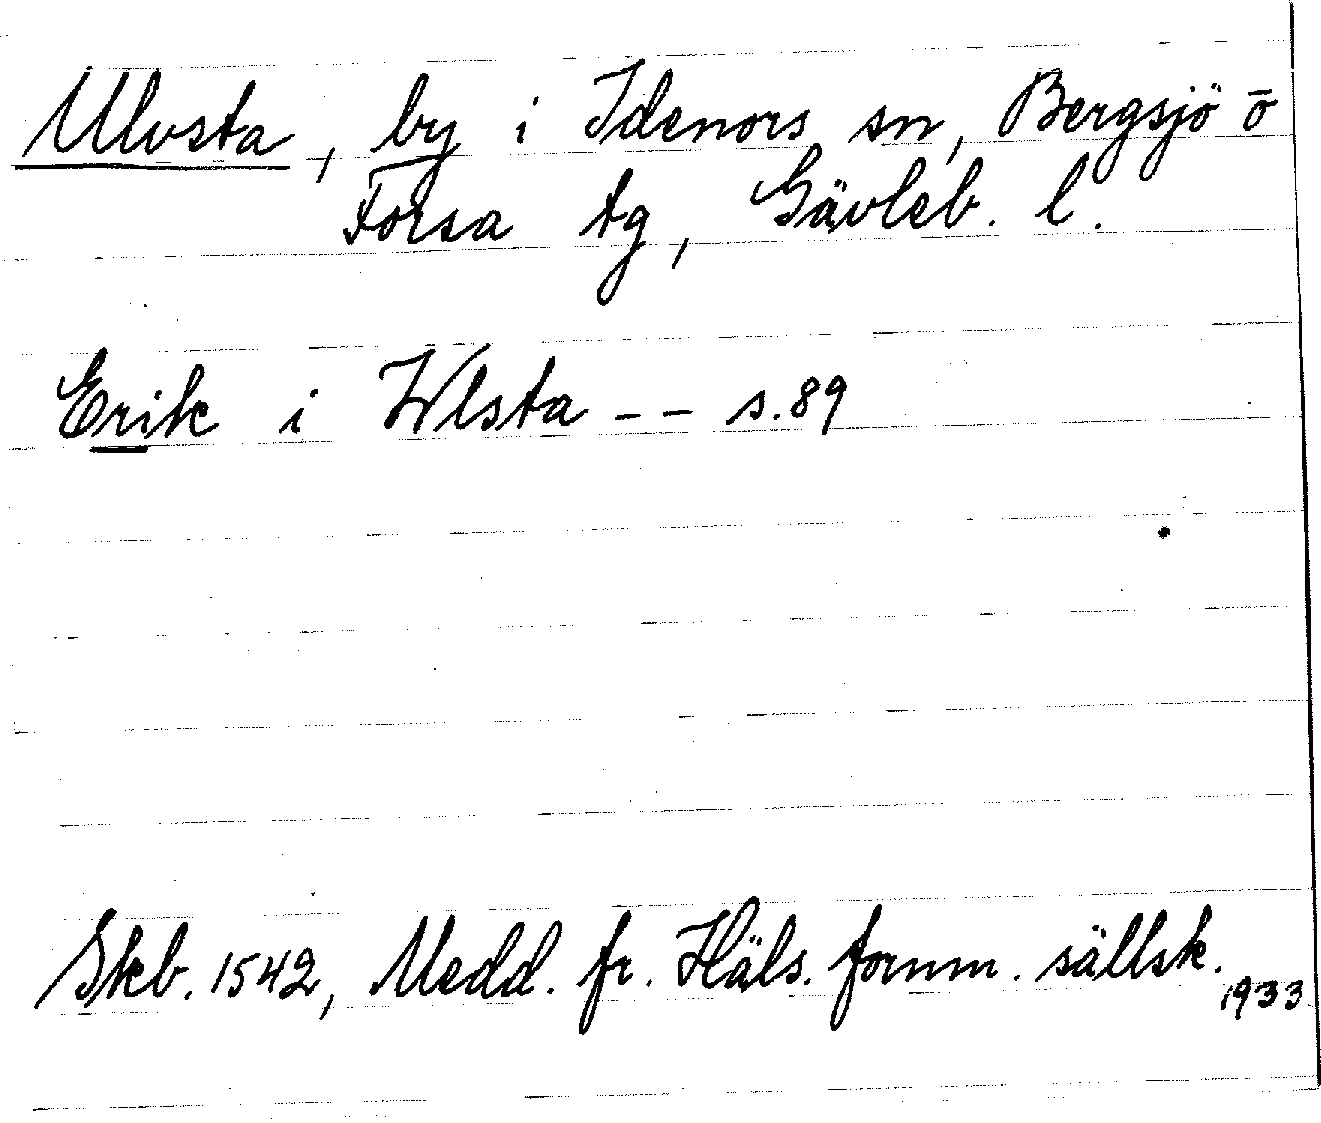 Ulvsta, by i Idenors sn, Bergsjö ō
Forsa tg, Gävleb. l.
Erik i Wlsta -- s.89
Skb. 1542, Medd. fr. Häls. fornm. sällsk.
1933